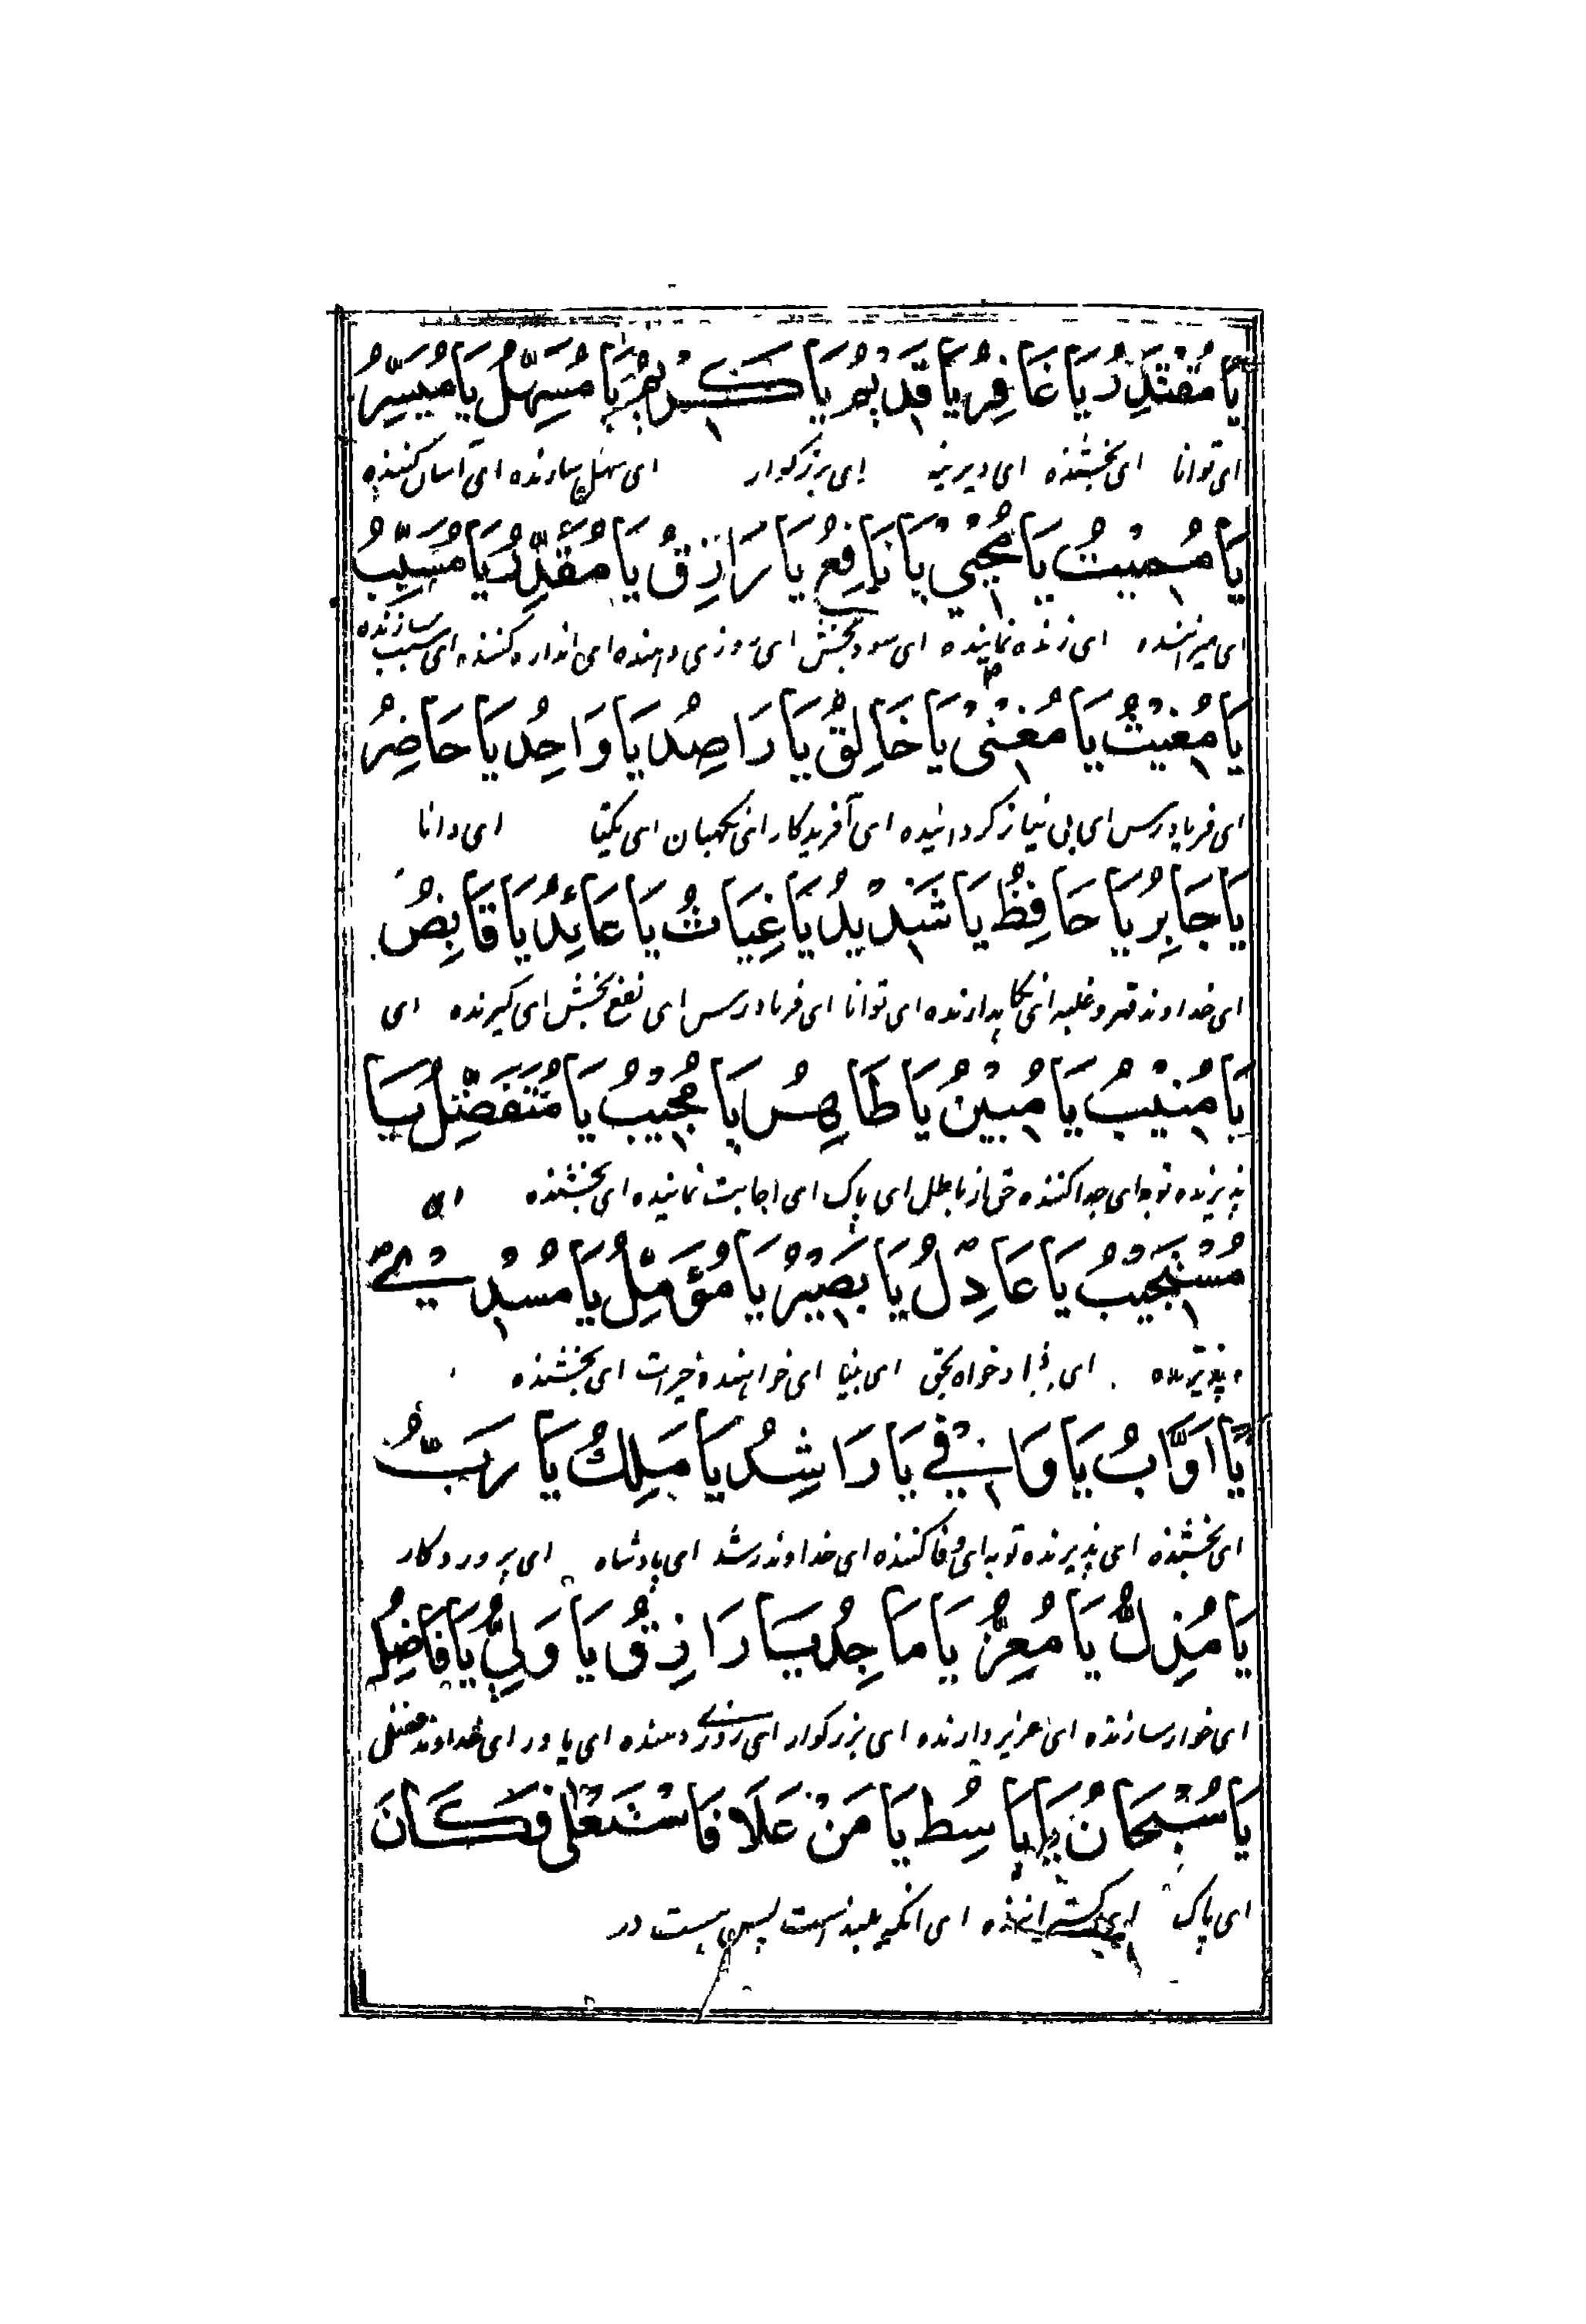 يَا مُقْتَدِرُ يَا غَافِرُ يَا قَدِيْمُ يَا كَرِيْمُ يَا مُسَهِّلُ يَا مُيَسِّرُ
ای توانا ای بخشنده ای دیرینه ای بزرگوار ای سهل سازنده ای آسان کننده
يَا مُمِيْتُ يَا مُحْيِيْ يَا نَافِعُ يَا رَازِقُ يَا مُقَدِّرُ يَا مُسَبِّبُ
ای میراننده ای زنده نماینده ای سود بخش ای روزی دهنده ای اندازه کننده ای سبب سازنده
يَا مُغِيْثُ يَا مُغْنِيْ يَا خَالِقُ يَا رَاصِدُ يَا وَاحِدُ يَا حَاضِرُ
ای فریادرس ای بی نیاز گرداننده ای آفریدگار ای نگهبان ای یکتا ای دانا
يَا جَابِرُ يَا حَافِظُ يَا شَدِيْدُ يَا غِيَاثُ يَا عَائِدُ يَا قَابِضُ
ای خداوند قهر و غلبه ای نگاهدارنده ای توانا ای فریادرس ای نفع بخش ای گیرنده ای
يَا مُنِيْبُ يَا مُبِيْنُ يَا طَاهِرُ يَا مُجِيْبُ يَا مُتَفَضِّلُ يَا
پذیرنده توبه ای جداکننده حق از باطل ای پاک ای اجابت نماینده ای بخشنده ای
مُسْتَجِيْبُ يَا عَادِلُ يَا بَصِيْرُ يَا مُؤَمِّلُ يَا مُسْدِيْ
پذیرنده ای دادخواه بحق ای بینا ای خواهنده خیرات ای بخشنده
يَا اَوَّابُ يَا وَافِيْ يَا رَاشِدُ يَا مَلِكُ يَا رَبُّ
ای بخشنده ای پذیرنده توبه ای وفاکننده ای خداوند رشد ای پادشاه ای پروردگار
يَا مُذِلُّ يَا مُعِزُّ يَا مَاجِدُ يَا رَازِقُ يَا وَلِيُّ يَا فَاضِلُ
ای خوار سازنده ای عزیز دارنده ای بزرگوار ای روزی دهنده ای یاور ای خداوند فضل
يَا سُبْحَانُ يَا بَاسِطُ يَا مَنْ عَلَا فَاسْتَعْلٰى فَكَانَ
ای پاک ای گستراننده ای آنکه بلند است پس هست در